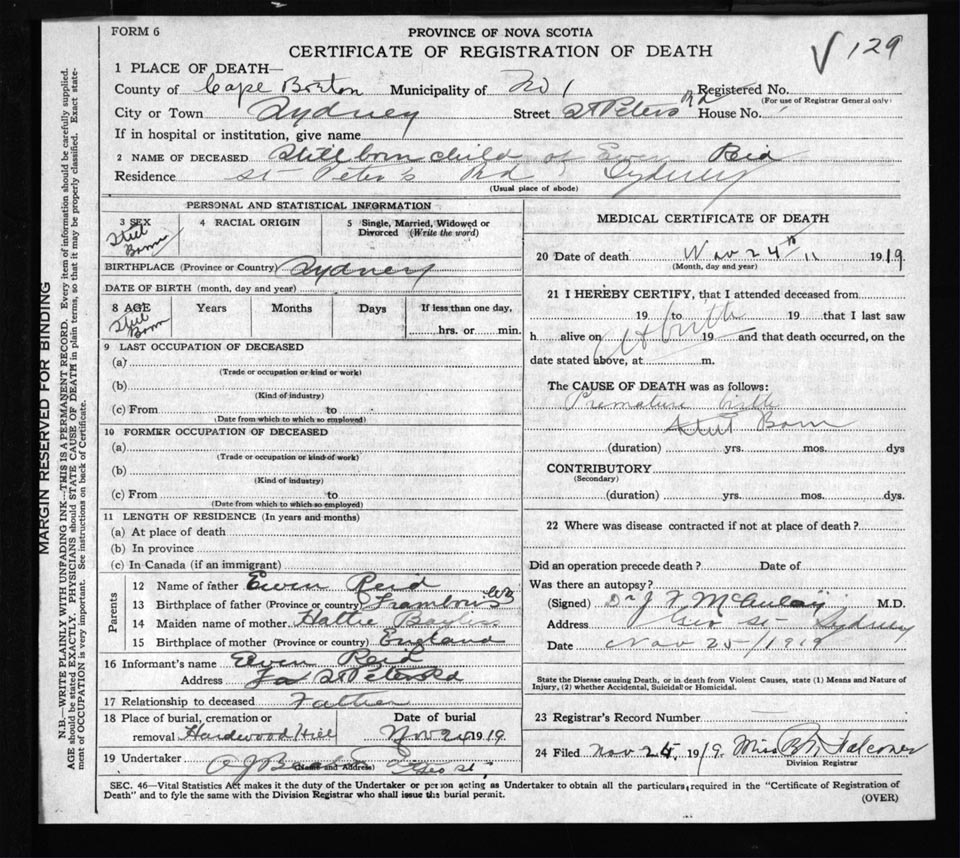 FORM 6
PROVINCE OF NOVA SCOTIA
CERTIFICATE OF REGISTRATION OF DEATH
√ 129
1 PLACE OF DEATH—
County of Cape Breton Municipality of No 1 Registered No.
(For use of Registrar General only)
City or Town Sydney Street St Peters Rd House No.
If in hospital or institution, give name
2 NAME OF DECEASED Still born child of Ewen Reid
Residence St Peter's Rd Sydney
(Usual place of abode)
PERSONAL AND STATISTICAL INFORMATION
3 SEX Still Born 4 RACIAL ORIGIN 5 Single, Married, Widowed or Divorced (Write the word)
BIRTHPLACE (Province or Country) Sydney
DATE OF BIRTH (month, day and year)
8 AGE Still Born Years Months Days If less than one day, hrs. or min.
9 LAST OCCUPATION OF DECEASED
(a)
(Trade or occupation or kind or work)
(b)
(Kind of industry)
(c) From to
(Date from which to which so employed)
10 FORMER OCCUPATION OF DECEASED
(a)
(Trade or occupation or kind of work)
(b)
(Kind of industry)
(c) From to
(Date from which to which so employed)
11 LENGTH OF RESIDENCE (In years and months)
(a) At place of death
(b) In province
(c) In Canada (if an immigrant)
Parents
12 Name of father Ewen Reid
13 Birthplace of father (Province or country) CB
14 Maiden name of mother Hattie
15 Birthplace of mother (Province or country) England
16 Informant's name Ewen Reid
Address St Peters Rd
17 Relationship to deceased Father
18 Place of burial, cremation or removal Hardwood Hill Date of burial Nov 24 1919
19 Undertaker Geo St
(Name and Address)
MEDICAL CERTIFICATE OF DEATH
20 Date of death Nov 24th 11 1919
(Month, day and year)
21 I HEREBY CERTIFY, that I attended deceased from
19 to 19 that I last saw
h alive on At birth 19 and that death occurred, on the
date stated above, at m.
The CAUSE OF DEATH was as follows:
Premature birth
Still Born
(duration) yrs. mos. dys
CONTRIBUTORY
(Secondary)
(duration) yrs. mos. dys.
22 Where was disease contracted if not at place of death?
Did an operation precede death? Date of
Was there an autopsy?
(Signed) Dr J McAulay M.D.
Address Geo St Sydney
Date Nov 25/1919
State the Disease causing Death, or in death from Violent Causes, state (1) Means and Nature of
Injury, (2) whether Accidental, Suicidal or Homicidal.
23 Registrar's Record Number
24 Filed Nov 25, 1919. Miss Falconer
Division Registrar
SEC. 46—Vital Statistics Act makes it the duty of the Undertaker or person acting as Undertaker to obtain all the particulars required in the "Certificate of Registration of
Death" and to fyle the same with the Division Registrar who shall issue the burial permit.
(OVER)
MARGIN RESERVED FOR BINDING
N.B.—WRITE PLAINLY WITH UNFADING INK—THIS IS A PERMANENT RECORD. Every item of information should be carefully supplied.
AGE should be stated EXACTLY. PHYSICIANS should STATE CAUSE OF DEATH in plain terms, so that it may be properly classified. Exact state-
ment of OCCUPATION is very important. See instructions on back of Certificate.